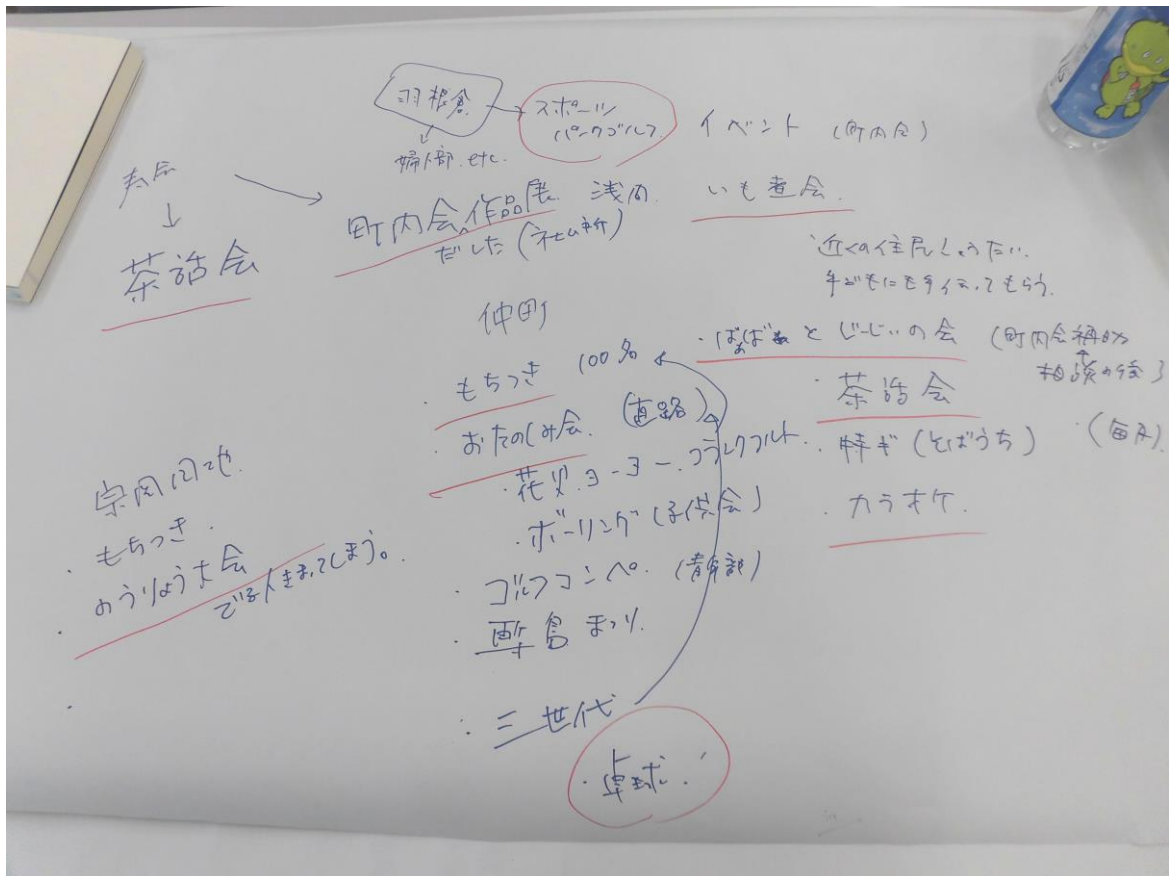 羽根倉
スポーツ
パークゴルフ
婦人部.etc.
イベント (町内会)
寿会
茶話会
町内会作品展
だした
浅間
いも煮会.
近くの住民しょうたい.
子どもにも手伝ってもらう.
仲町
・もちつき 100名
・おたのしみ会. (道路)
・花火.ヨーヨー.フランクフルト.
・ボーリング (子供会)
・ゴルフコンペ. (青年部)
まつり.
・三世代
・卓球.
・ばぁばぁとじーじぃの会 (町内会補助
相談の後)
・茶話会
・特ギ (そばうち) (毎月)
・カラオケ.
宗岡団地.
・もちつき.
・のうりょう大会
でる人きまってしまう。